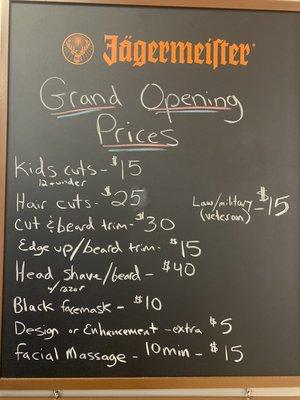 Jägermeister
Grand Opening
Prices
Kids cuts - $15
12 + under
Hair cuts - $25
Law/military - $15
(veteran)
Cut & beard trim - $30
Edge up/beard trim - $15
Head shave/beard - $40
w/razor
Black facemask - $10
Design or Enhancement - extra $5
facial Massage - 10min - $15